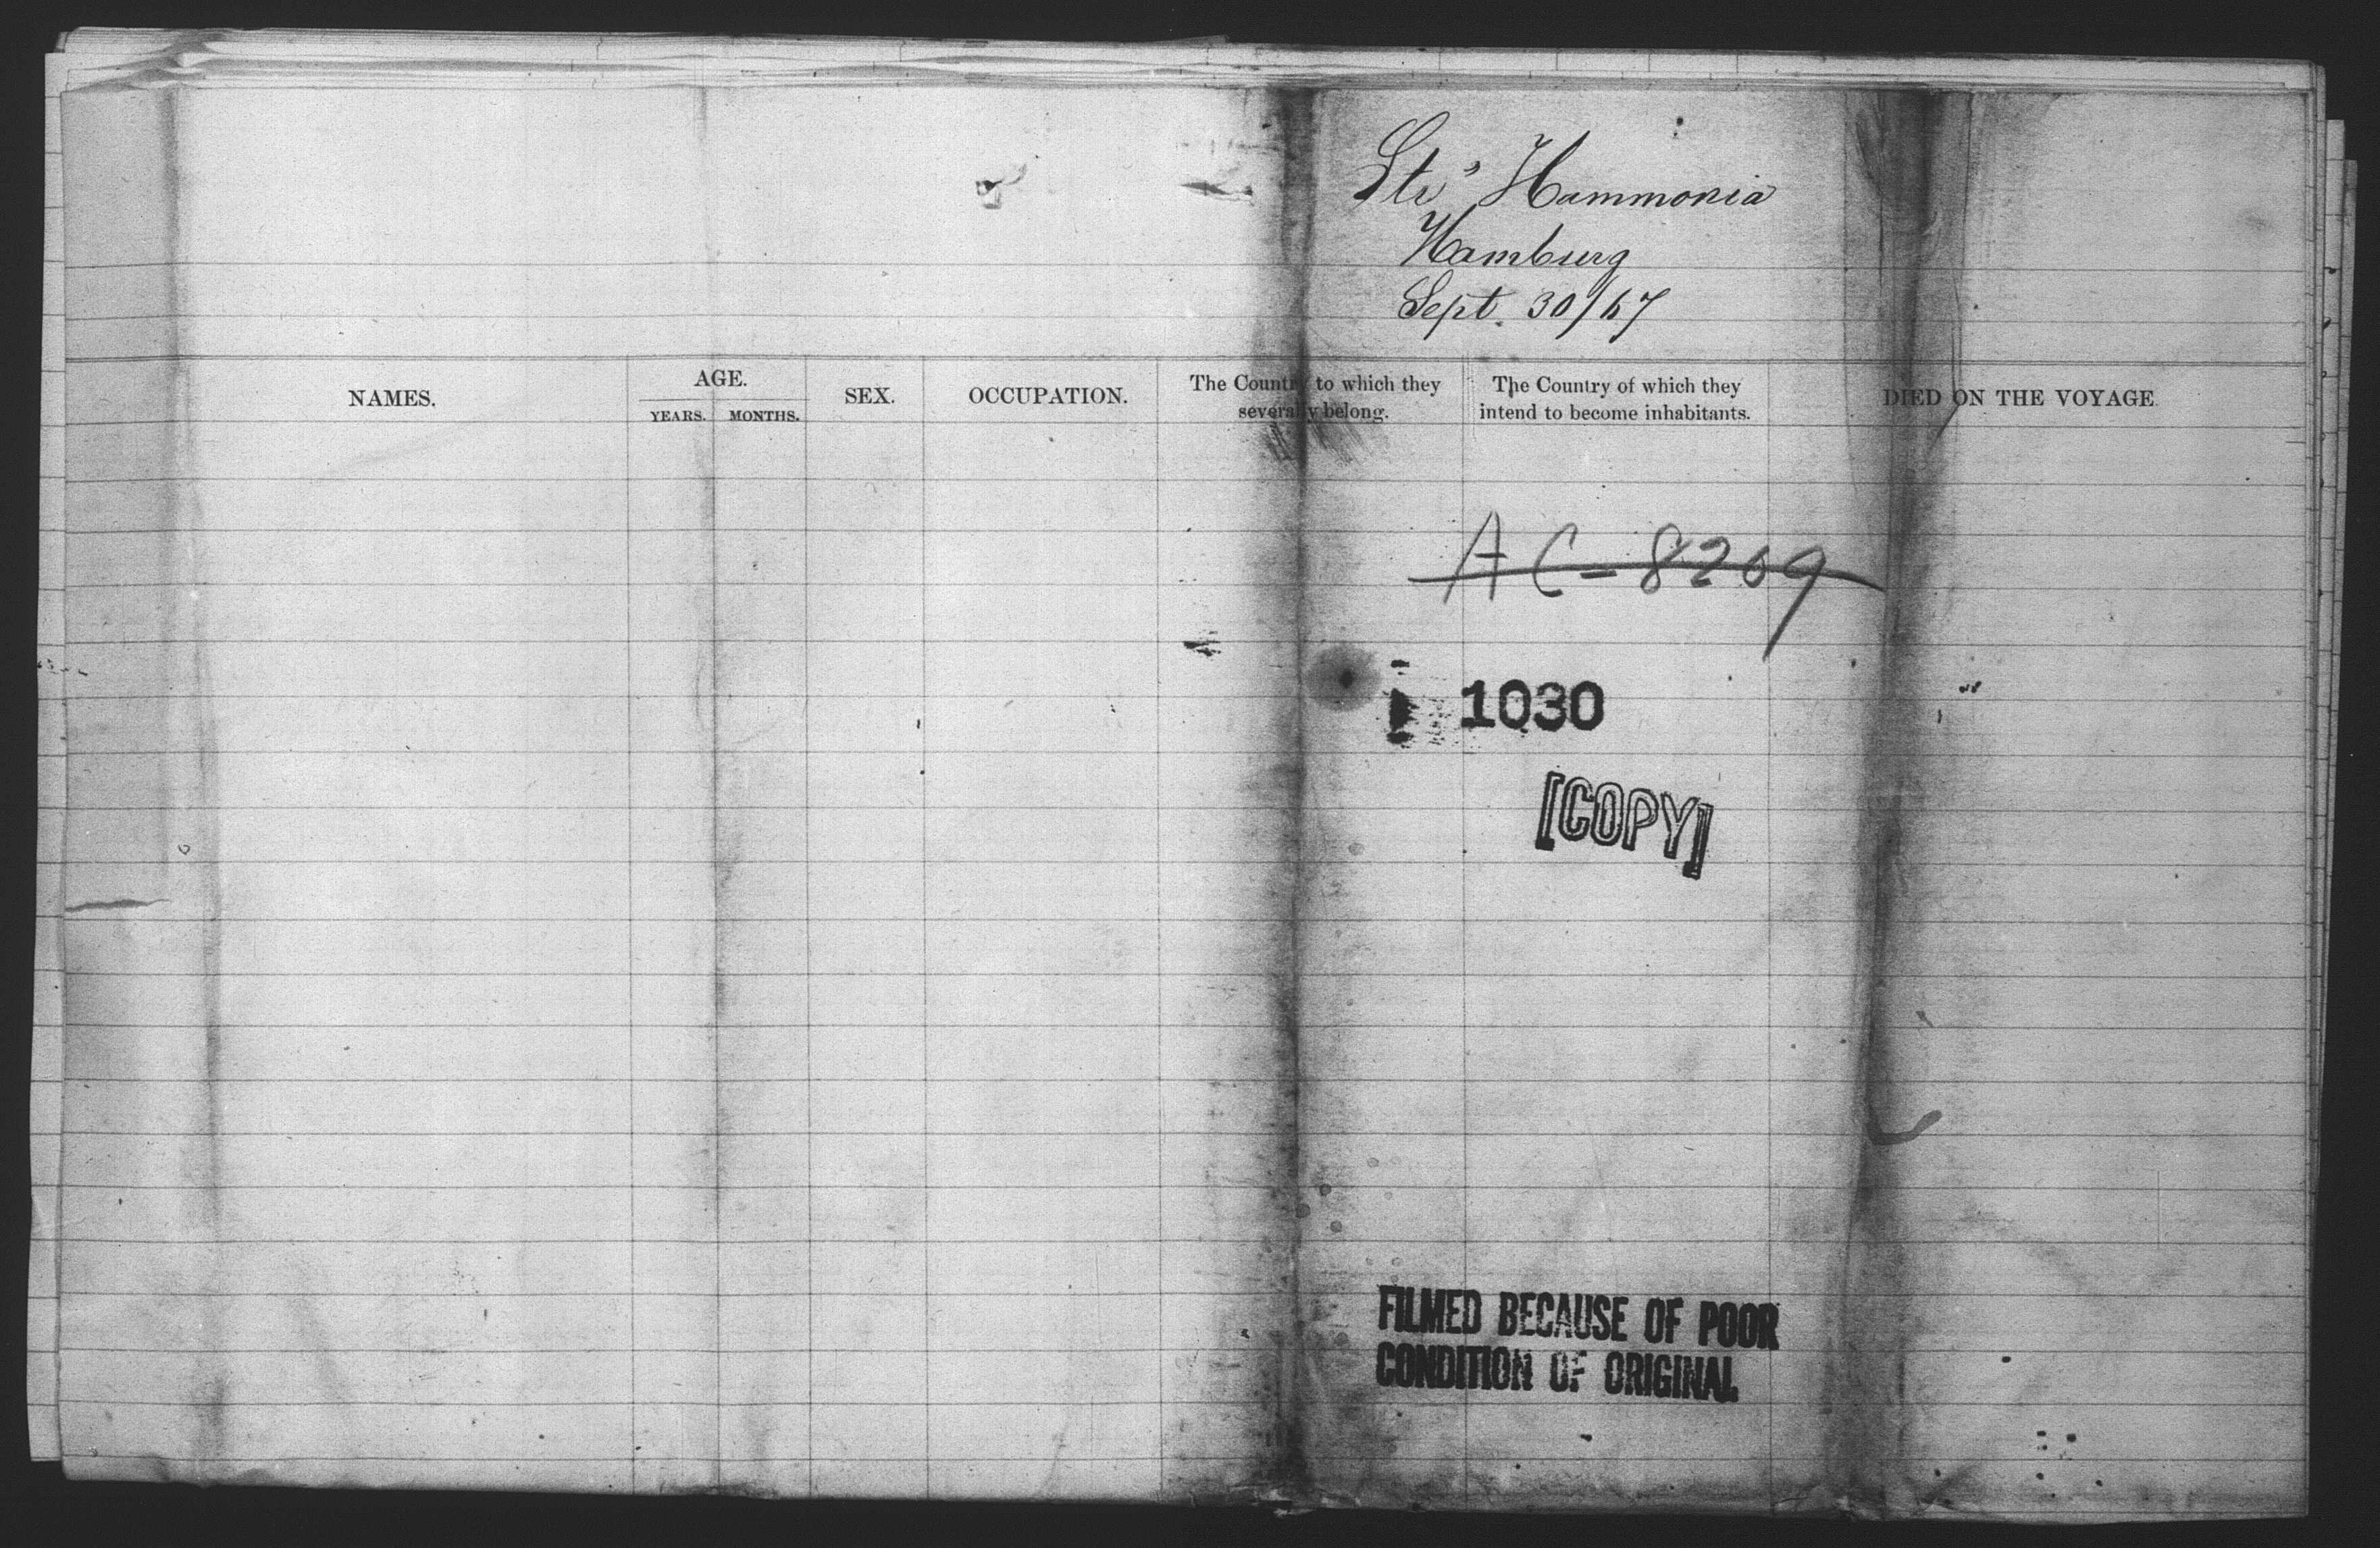 Str Hammonia
Hamburg
Sept. 30/67
NAMES.
AGE.
YEARS.
MONTHS.
SEX.
OCCUPATION.
The Country to which they
severally belong.
The Country of which they
intend to become inhabitants.
DIED ON THE VOYAGE.
AC-8209
1030
[COPY]
FILMED BECAUSE OF POOR
CONDITION OF ORIGINAL